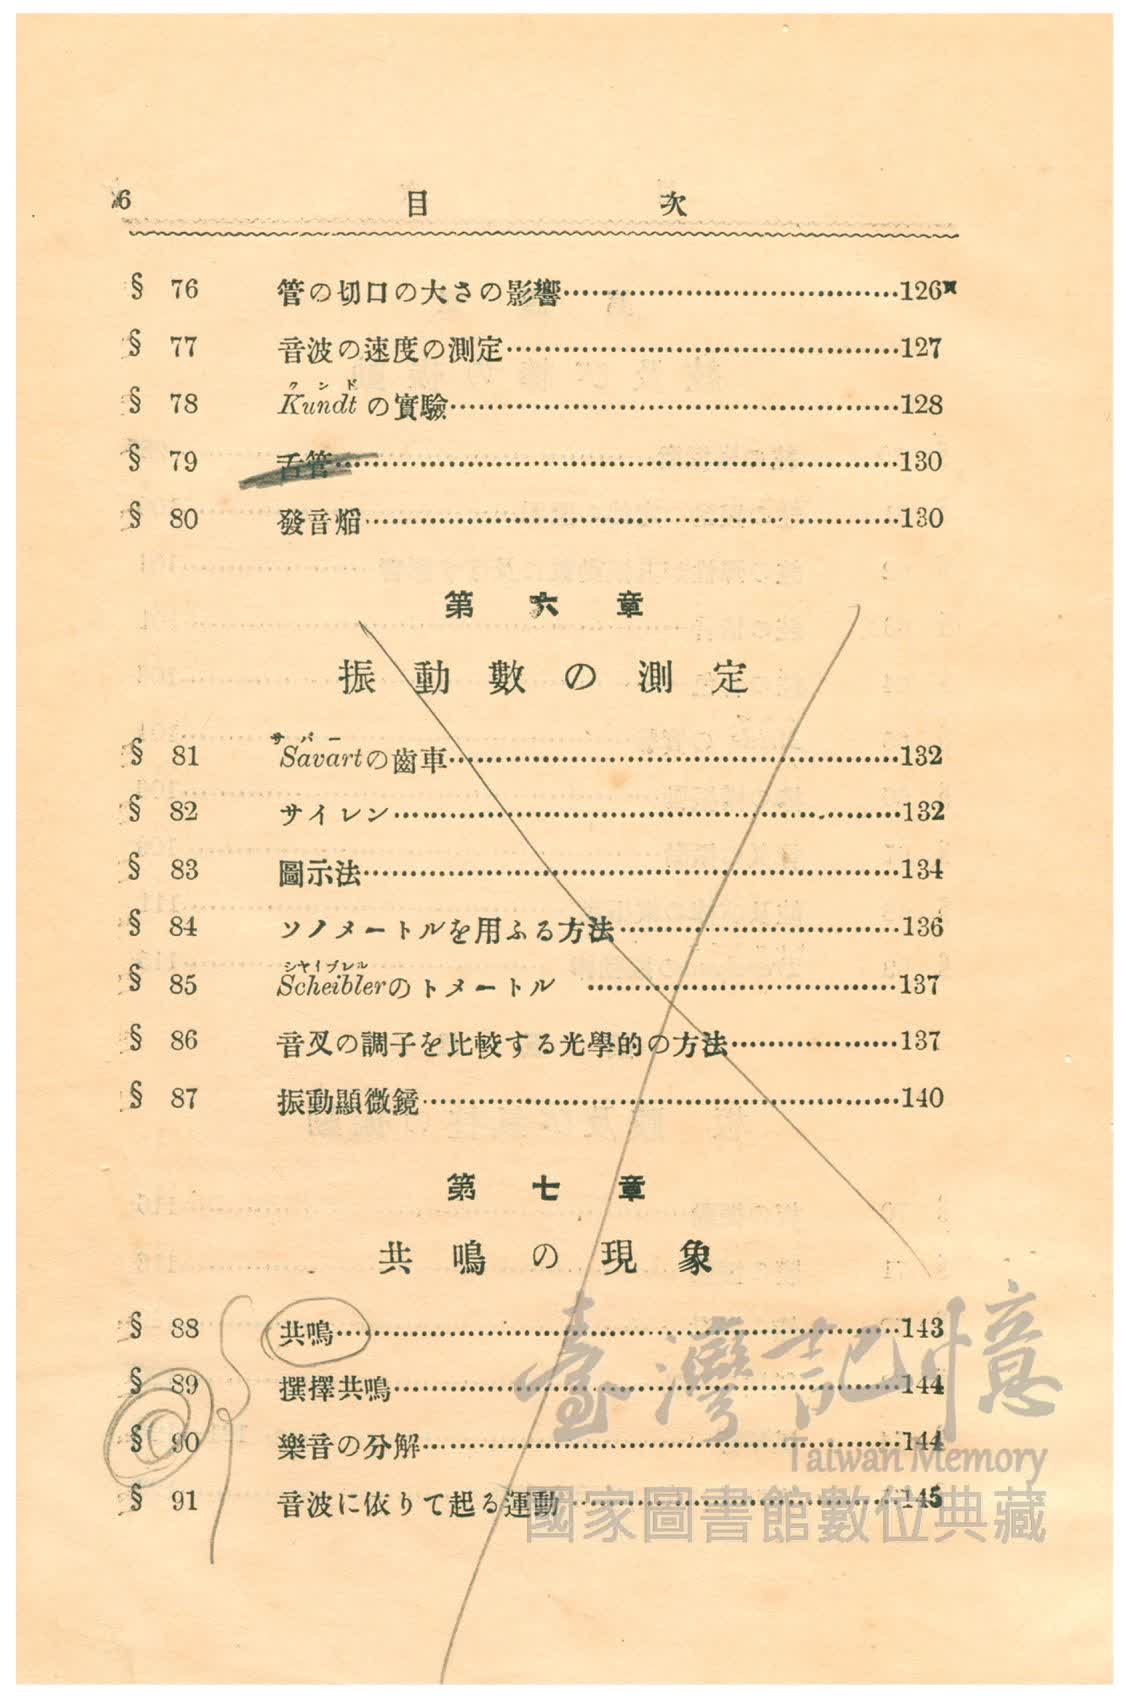 6 目次
§ 76 管の切口の大さの影響……126頁
§ 77 音波の速度の測定……127
クンド
§ 78 Kundt の實驗……128
§ 79 舌管……130
§ 80 發音焰……130
第六章
振動數の測定
サバー
§ 81 Savartの齒車……132
§ 82 サイレン……132
§ 83 圖示法……134
§ 84 ソノメートルを用ふる方法……136
シヤイブレル
§ 85 Scheiblerのトメートル……137
§ 86 音叉の調子を比較する光學的の方法……137
§ 87 振動顯微鏡……140
第七章
共鳴の現象
§ 88 共鳴……143
§ 89 撰擇共鳴……144
§ 90 樂音の分解……144
§ 91 音波に依りて起る運動……145
臺灣記憶
Taiwan Memory
國家圖書館數位典藏